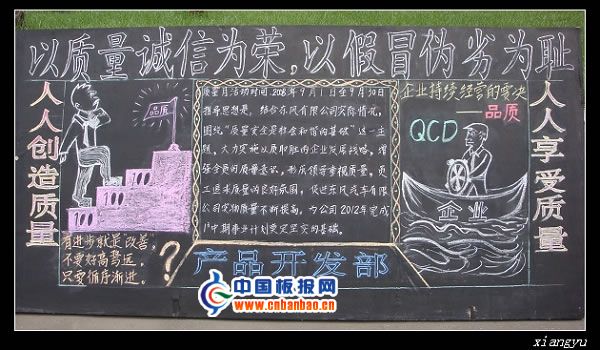 以质量诚信为荣，以假冒伪劣为耻
人人创造质量
品质
有进步就是改善，
不要好高骛远，
只要循序渐进。
?
质量月活动时间:2008年9月1日至9月30日
指导思想是：结合东风有限公司实际情况，
围绕“质量安全是社会和谐的基础”这一主
题，大力实施以质取胜的企业发展战略，增
强全员的质量意识，形成领导重视质量，员
工追求质量的良好氛围，促进东风汽车有限
公司实物质量不断提高，为公司2012年完成
1³中期事业计划奠定坚实的基础。
产品开发部
企业持续经营的要决
——品质
QCD
企业
人人享受质量
中国板报网
www.cnbanbao.cn
xiangyu